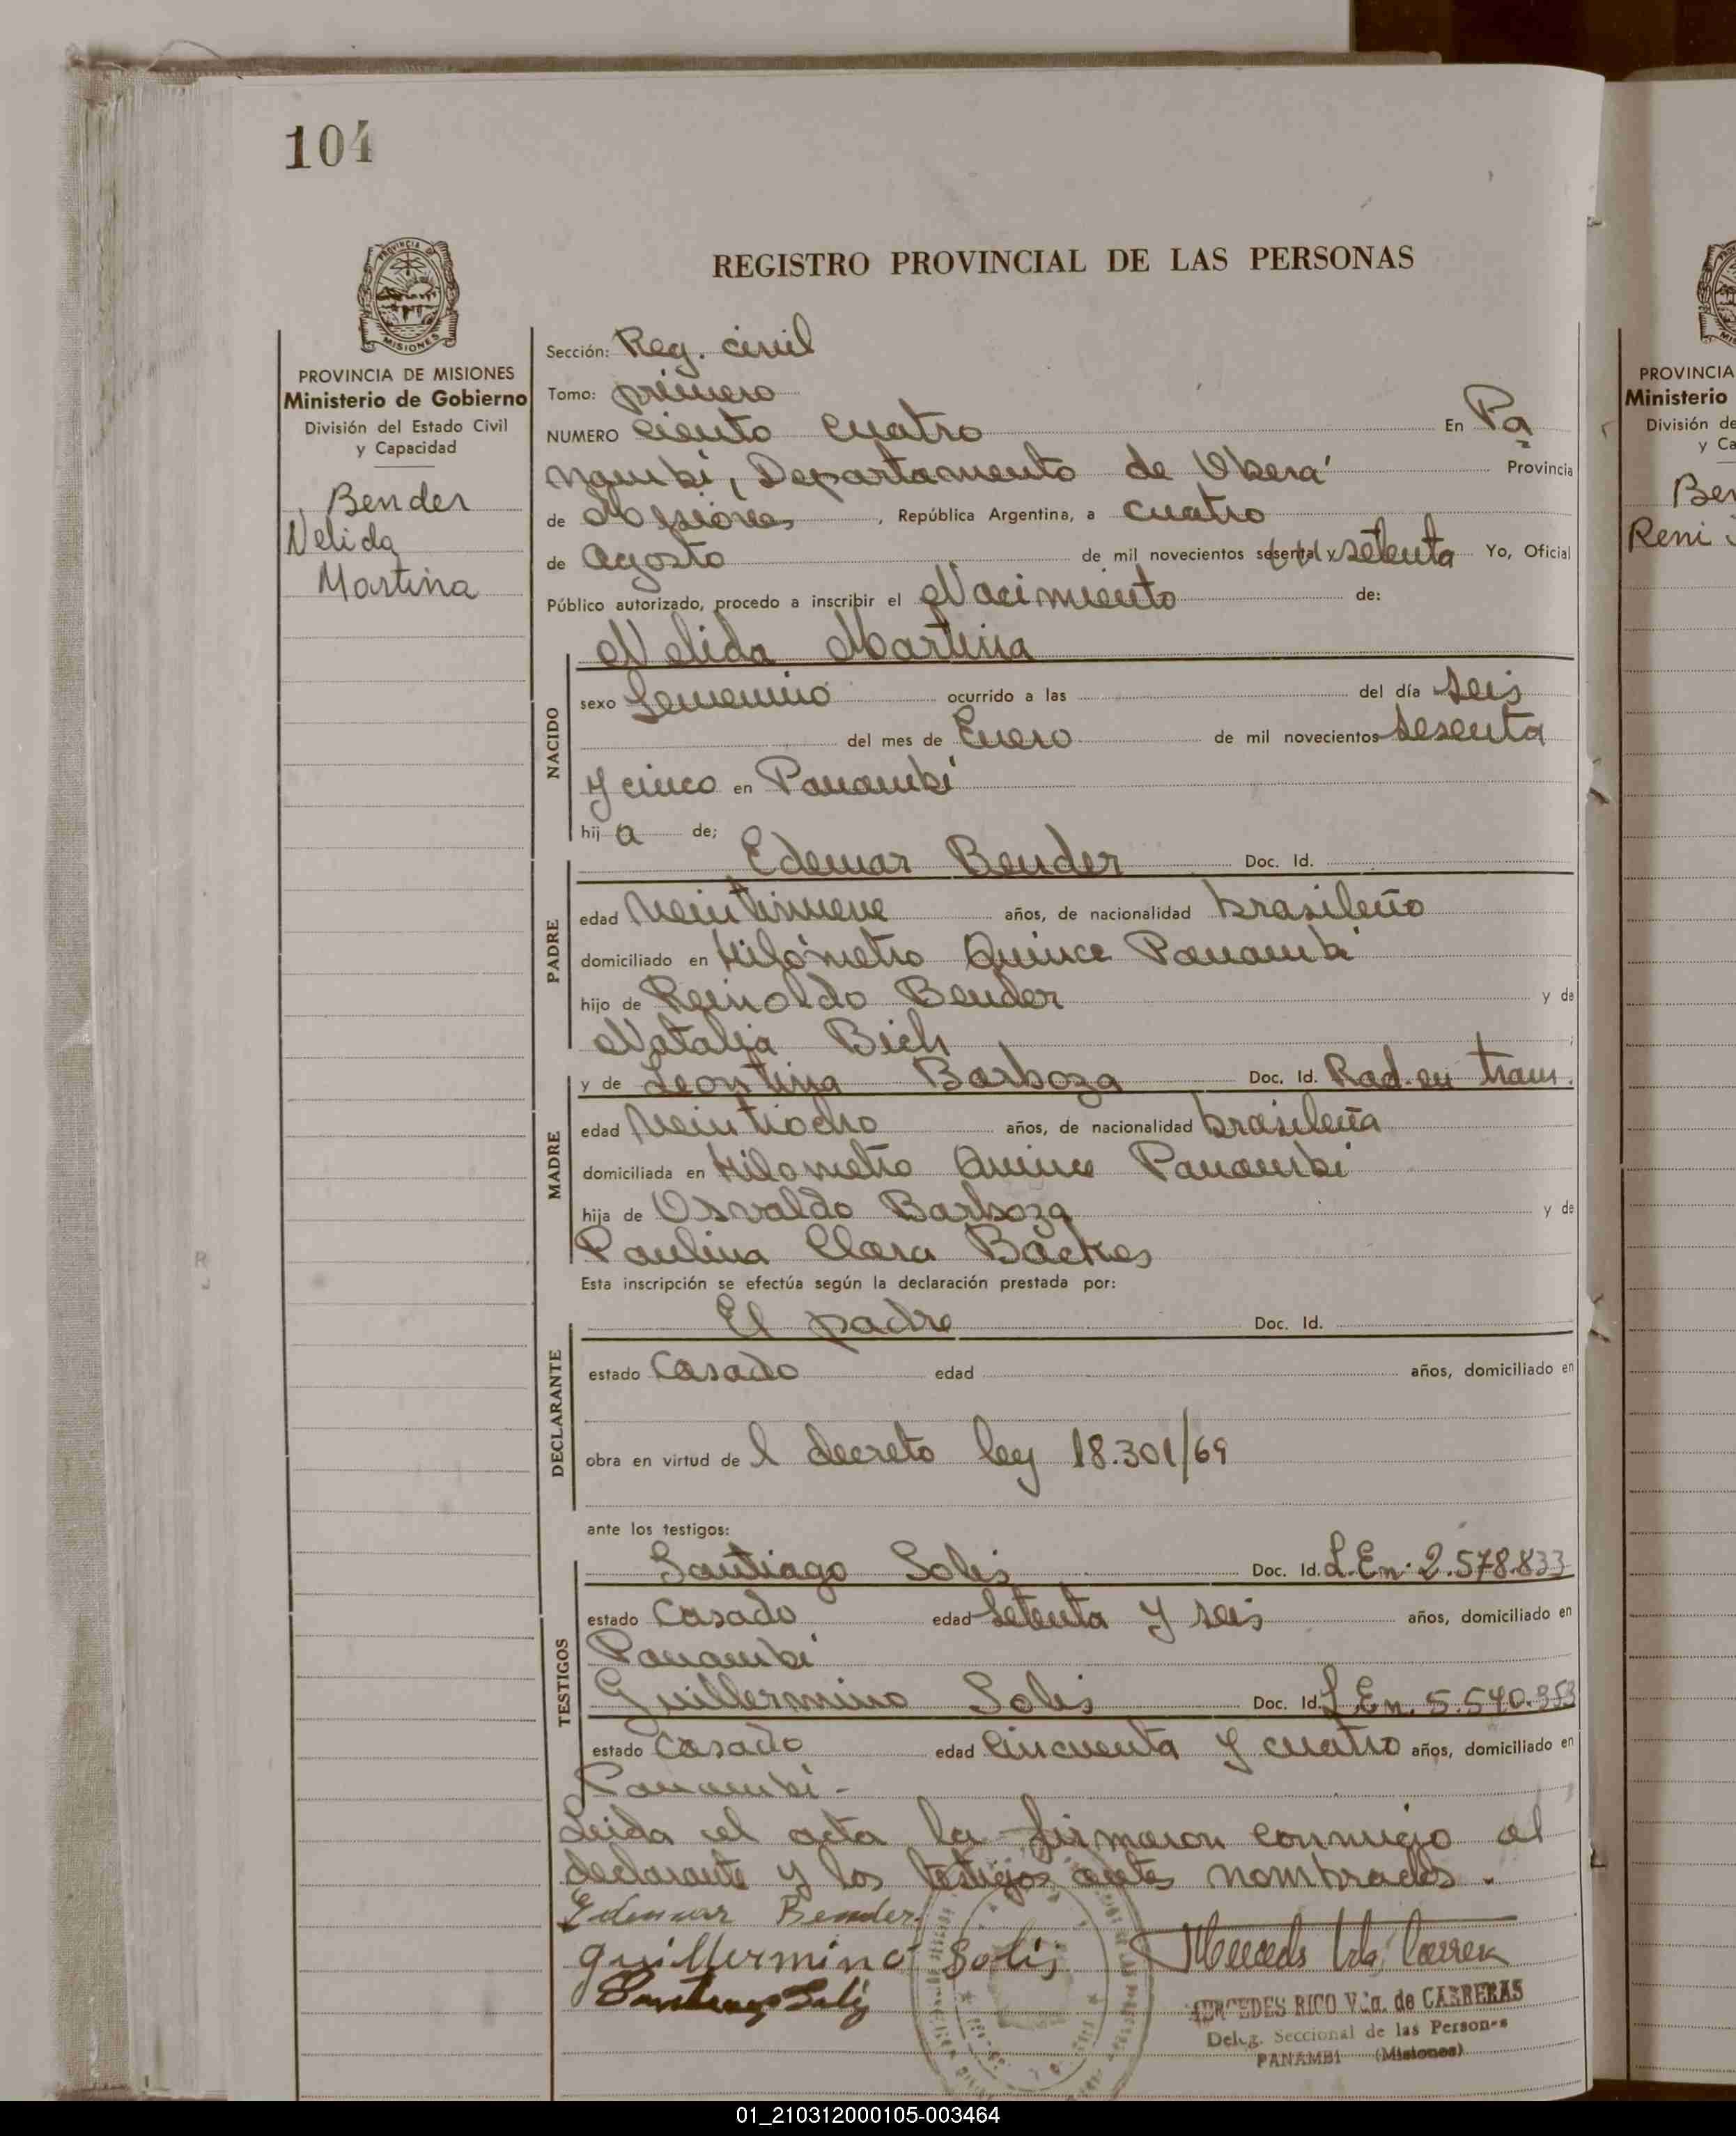 104
REGISTRO PROVINCIAL DE LAS PERSONAS
MISIONES
PROVINCIA DE MISIONES
Ministerio de Gobierno
División del Estado Civil
y Capacidad
Bender
Nelida
Martina
Sección: Reg. civil
Tomo: primero
NUMERO ciento cuatro En Pa
nambi, Departamento de Oberá Provincia
de Misiones, República Argentina, a cuatro
de Agosto de mil novecientos sesenta y setenta Yo, Oficial
Público autorizado, procedo a inscribir el Nacimiento de:
Nelida Martina
NACIDO
sexo femenino ocurrido a las del día seis
del mes de Enero de mil novecientos sesenta
y cinco en Panambi
hij a de;
Edemar Bender Doc. Id.
PADRE
edad veintinueve años, de nacionalidad brasileño
domiciliado en Kilómetro Quince Panambi
hijo de Reinoldo Bender y de
Natalia Bich
y de Leontina Barboza Doc. Id. Rad. en tram.
MADRE
edad veintiocho años, de nacionalidad brasileña
domiciliada en Kilometro Quince Panambi
hija de Osvaldo Barboza y de
Paulina Clara Backes
Esta inscripción se efectúa según la declaración prestada por:
El padre Doc. Id.
DECLARANTE
estado Casado edad años, domiciliado en
obra en virtud de l decreto ley 18.301/69
ante los testigos:
Santiago Solis Doc. Id. L.En. 2.578.833
TESTIGOS
estado Casado edad Setenta y seis años, domiciliado en
Panambi
Guillermino Solis Doc. Id. L.En. 5.540.
estado Casado edad Cincuenta y cuatro años, domiciliado en
Panambi -
Leida el acta la firmaron conmigo el
declarante y los testigos antes nombrados.
Edemar Bender
Guillermino Solis
Santiago Solis
MERCEDES RICO Vda. de CARRERAS
Deleg. Seccional de las Personas
PANAMBI (Misiones)
PROVINCIA
Ministerio
División de
y Ca
Ben
Reni
01_210312000105-003464